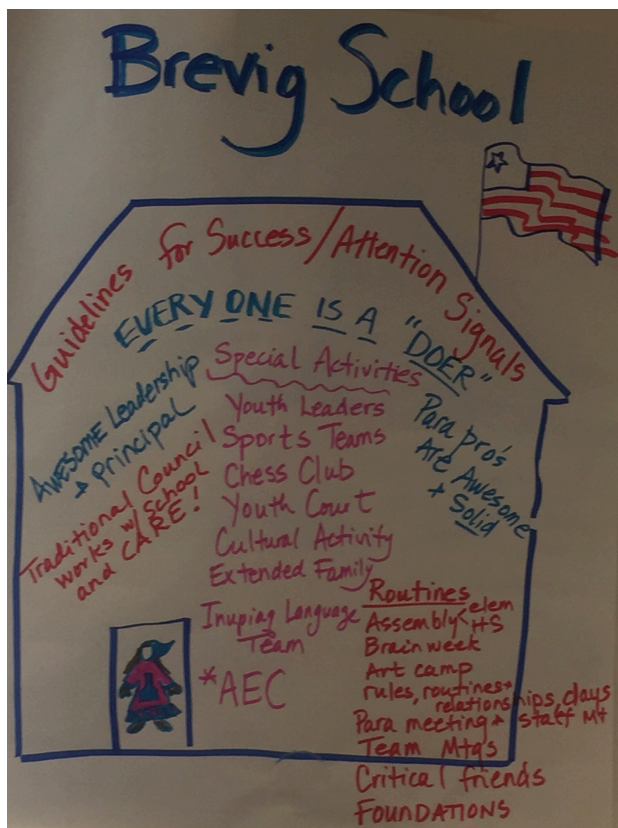 Brevig School
Guidelines for Success/Attention Signals
EVERYONE IS A "DOER"
AWESOME Leadership
+ principal
Traditional Council
works w/ school
and CARE!
Special Activities
Youth Leaders
Sports Teams
Chess Club
Youth Court
Cultural Activity
Extended Family
Inupiaq Language
Team
*AEC
Para pro's
Are Awesome
+ Solid
Routines
Assembly < elem
HS
Brainweek
Art camp
rules, routines +
relationships, days
Para meeting + staff Mt
Team Mtg's
Critical friends
FOUNDATIONS